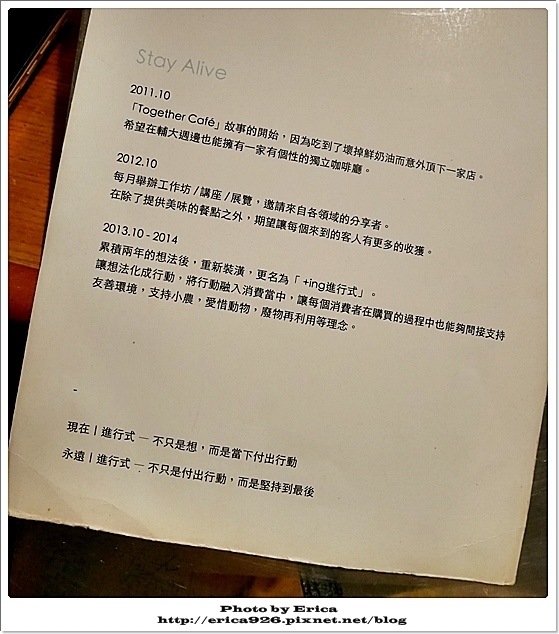 Stay Alive
2011.10
「Together Café」故事的開始，因為吃到了壞掉鮮奶油而意外頂下一家店。
希望在輔大週邊也能擁有一家有個性的獨立咖啡廳。
2012.10
每月舉辦工作坊/講座/展覽，邀請來自各領域的分享者。
在除了提供美味的餐點之外，期望讓每個來到的客人有更多的收獲。
2013.10 - 2014
累積兩年的想法後，重新裝潢，更名為「 +ing進行式」。
讓想法化成行動，將行動融入消費當中，讓每個消費者在購買的過程中也能夠間接支持
友善環境，支持小農，愛惜動物，廢物再利用等理念。
-
現在 | 進行式 — 不只是想，而是當下付出行動
永遠 | 進行式 — 不只是付出行動，而是堅持到最後
Photo by Erica
http://erica926.pixnet.net/blog